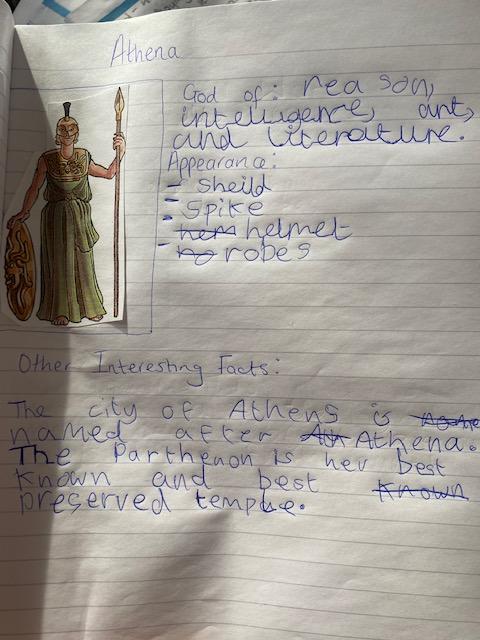 Athena
God of: reason,
intelligence, art,
and literature.
Appearance:
- Sheild
- Spike
- hem helmet
- ro robes
Other Interesting Facts:
The city of Athens is
named after Ath Athena.
The Parthenon is her best
known and best known
preserved temple.